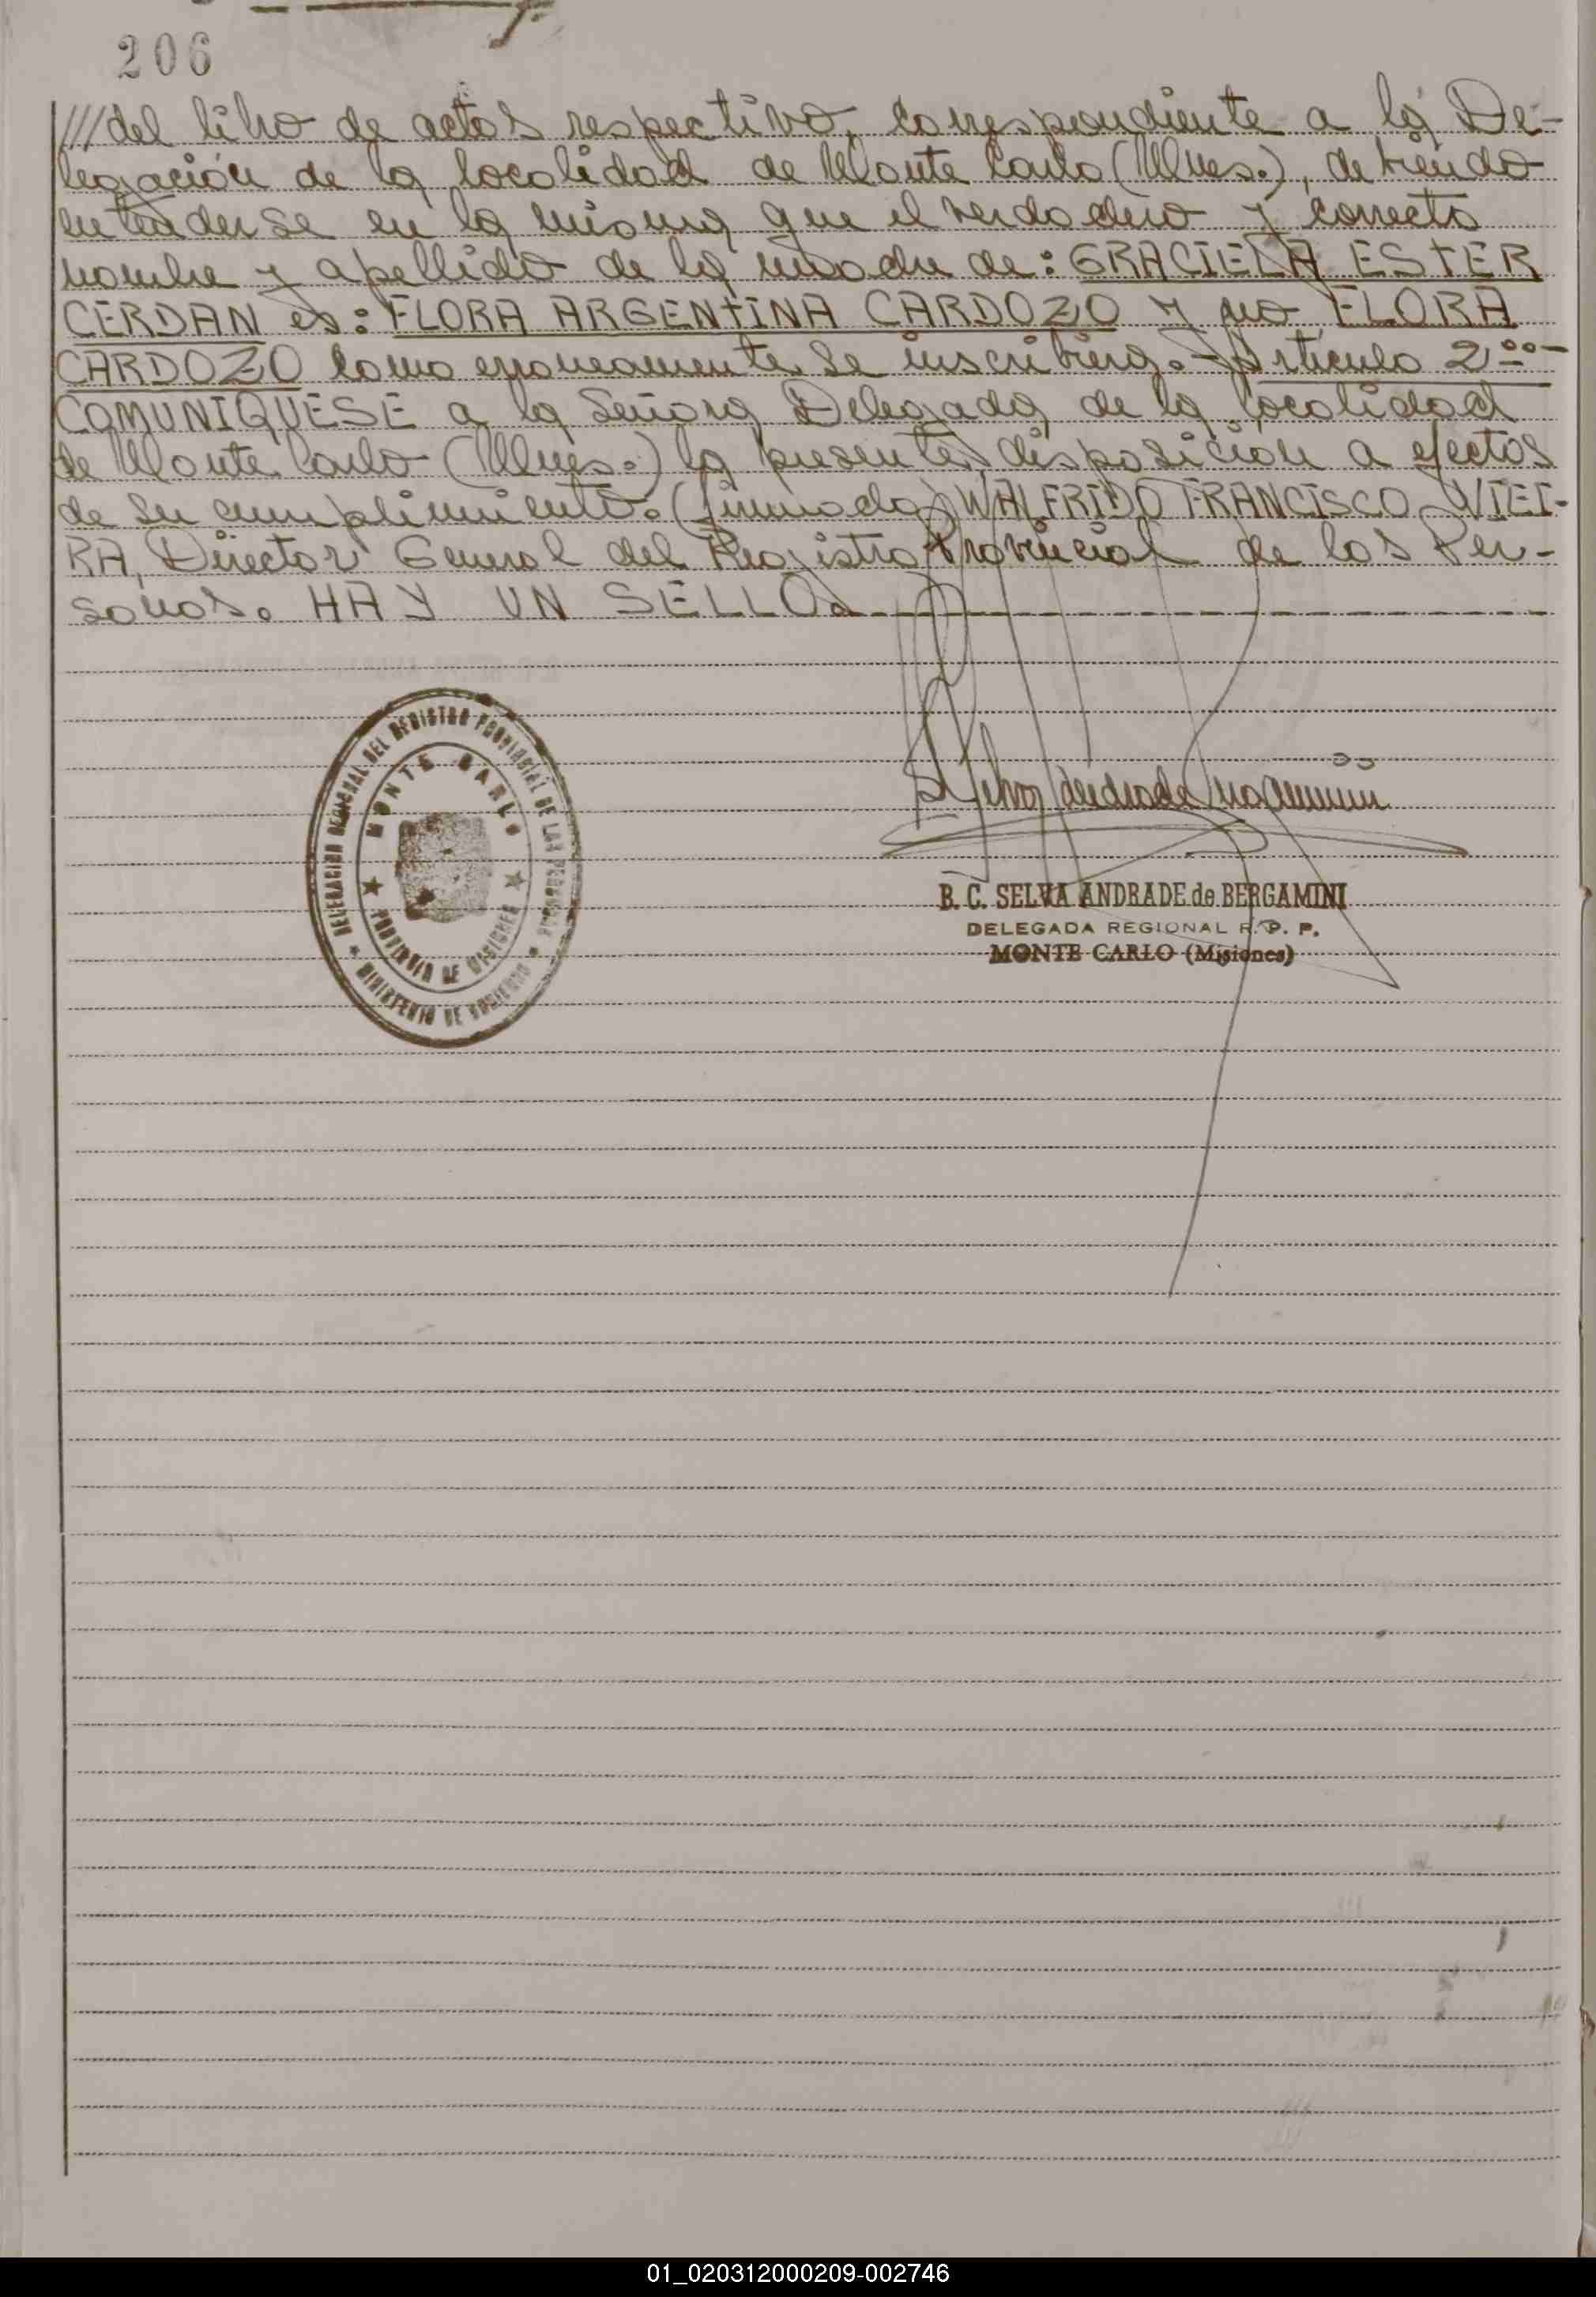 206
///del libro de actas respectivo, correspondiente a la De-
legación de la localidad de Monte Carlo (Mnes.), debiendo
entenderse en la misma que el verdadero y correcto
nombre y apellido de la madre de: GRACIELA ESTER
CERDAN es: FLORA ARGENTINA CARDOZO y no FLORA
CARDOZO como erroneamente se inscribiera. Artículo 2º--
COMUNIQUESE a la Señora Delegada de la localidad
de Monte Carlo (Mnes.) la presente disposición a efectos
de su cumplimiento. (firmado) WALFRIDO FRANCISCO VIEI-
RA, Director General del Registro Provincial de las Per-
sonas. HAY UN SELLO.
DELEGACION REGIONAL DEL REGISTRO PROVINCIAL DE LAS PERSONAS
MONTE CARLO
PROVINCIA DE MISIONES
MINISTERIO DE GOBIERNO
B. C. SELVA ANDRADE de BERGAMINI
DELEGADA REGIONAL R. P. P.
MONTE CARLO (Misiones)
01_020312000209-002746